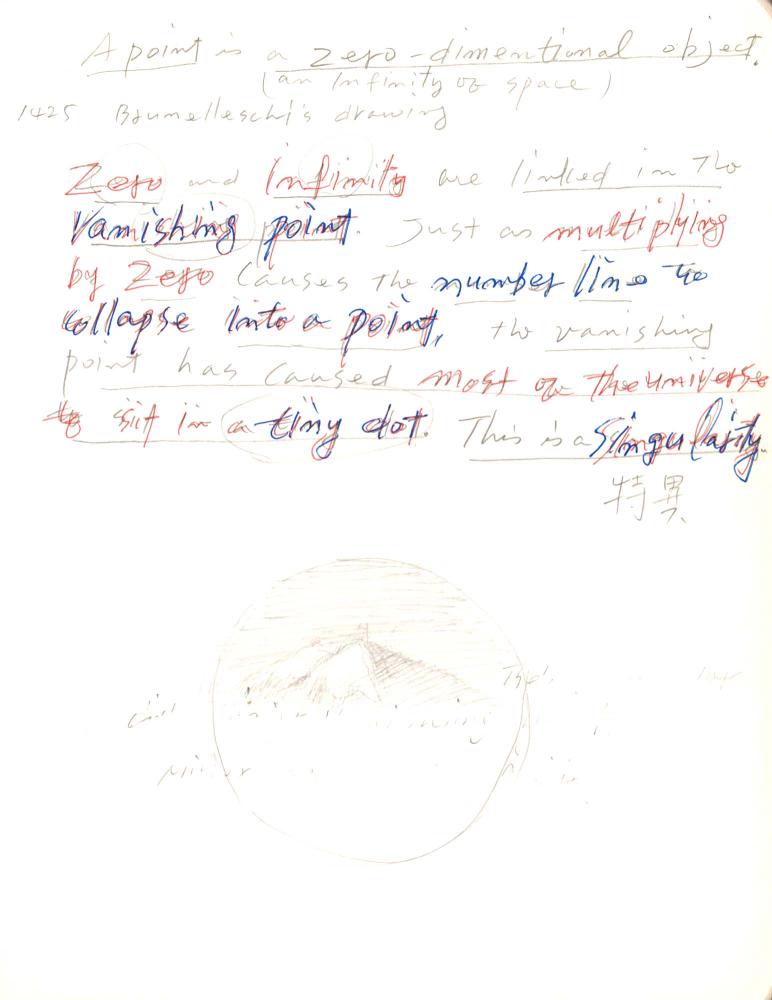 A point is a zero-dimentional object.
(an Infinity of space)
1425 Brunelleschi's drawing
Zero and Infinity are linked in the
Vanishing point. Just as multiplying
by Zero causes the number line to
collapse into a point, the vanishing
point has caused most of the universe
to sit in a tiny dot. This is a Singularity.
特異